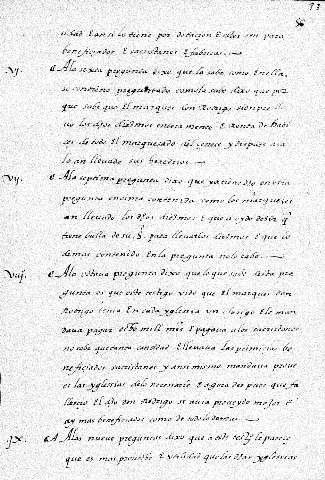 73
sidad E ansi se tiene por dotacion E salos son para
beneficiados E sacristanes E fabricas.
vj. A la sexta pregunta dixo que la sabe como en ella
se contiene preguntado como la sabe dixo que por
que sabe que El marques don Rodrigo siempre lle
uo los dhos diezmos entera mente E Renta de habi
ces de todo El marquesado del çenete y despues aca
lo an llevado sus herederos
vij. A la septima pregunta dixo que
pregunta en cima contenida como los marqueses
an llevado los dhos diezmos E que a oydo dezir q
tiene bulla de su Sd. para llevar los diezmos E que lo
demas contenido En la pregunta no lo sabe
viij. A la otava pregunta dixo que lo que sabe desta pre
gunta es que este testigo vido que El marques don
Rodrigo tenia En cada yglesia un clerigo E le man
dava pagar ocho mill mrs E pagava a los sacristanes
no sabe que tanta cantidad E llevava las primicias be
neficiados sacristanes y ansi mismo mandava prove
er las yglesias de lo necesario E agora despues que fa
llescio El dho don Rodrigo se a proveydo mejor E
ay mas beneficiados como dicho
ix. A las nueve preguntas dixo que a este testigo le paresce
que es mas provecho E utilidad que las dhas yglesias